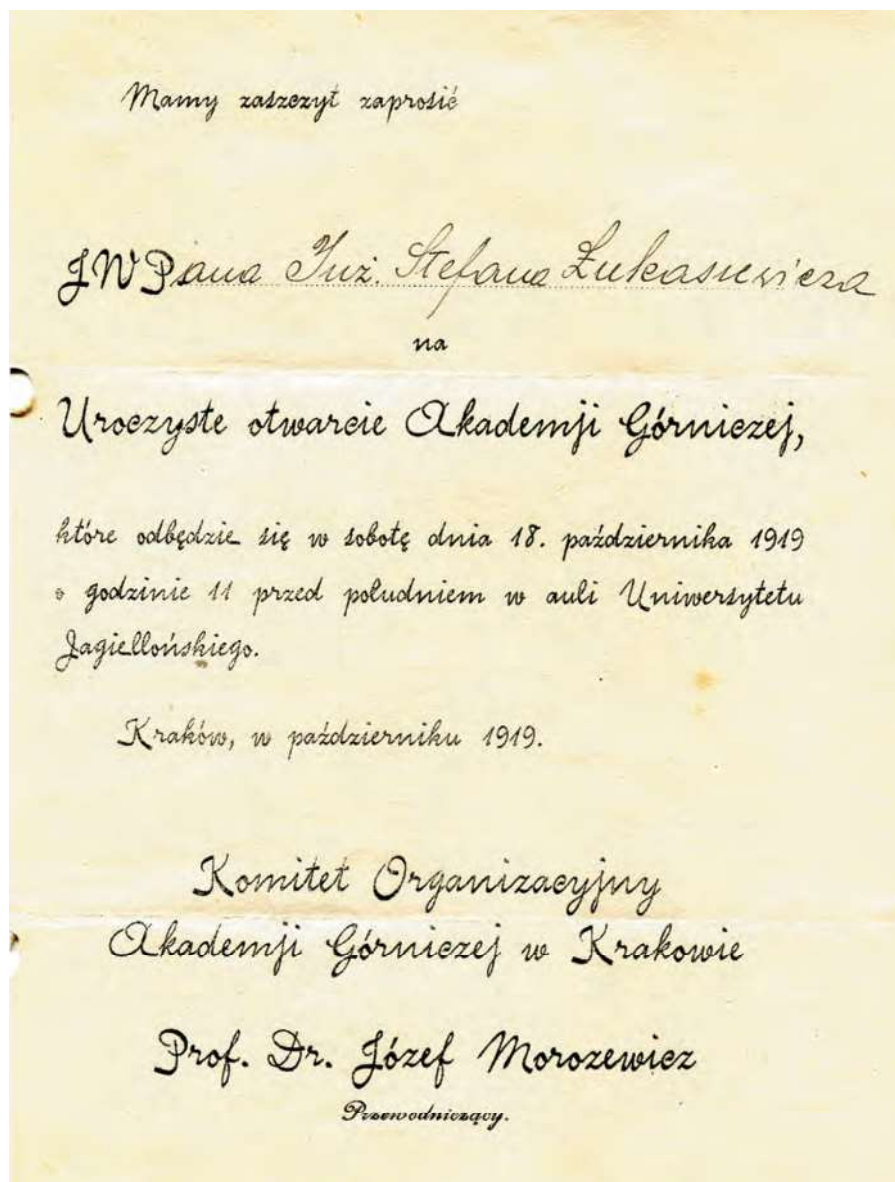 Mamy zaszczyt zaprosić
JWPana Inż. Stefana Łukasiewicza
na
Uroczyste otwarcie Akademji Górniczej,
które odbędzie się w sobotę dnia 18. października 1919
o godzinie 11 przed południem w auli Uniwersytetu
Jagiellońskiego.
Kraków, w październiku 1919.
Komitet Organizacyjny
Akademji Górniczej w Krakowie
Prof. Dr. Józef Morozewicz
Przewodniczący.